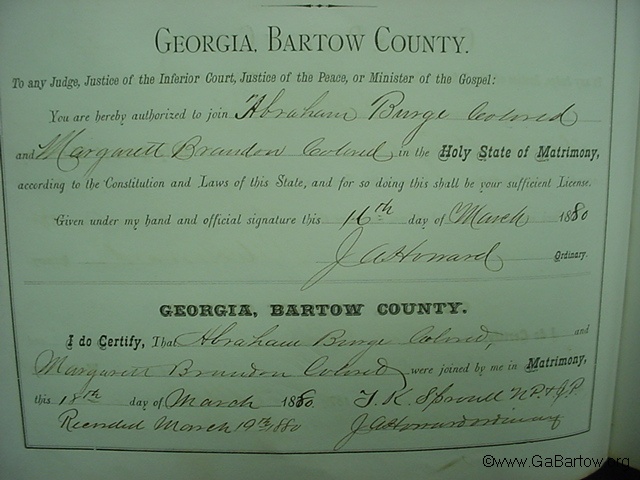 GEORGIA, BARTOW COUNTY.
To any Judge, Justice of the Inferior Court, Justice of the Peace, or Minister of the Gospel:
You are hereby authorized to join Abraham Burge Colored
and Margarett Brandon Colored in the Holy State of Matrimony,
according to the Constitution and Laws of this State, and for so doing this shall be your sufficient License.
Given under my hand and official signature this 16th day of March 1880
J A Howard Ordinary.
GEORGIA, BARTOW COUNTY.
I do Certify, That Abraham Burge Colored, and
Margarett Brandon Colored were joined by me in Matrimony,
this 18th day of March 1880. T. K. Sproull N.P. & J.P.
Recorded March 19th 1880 J A Howard ordinary
©www.GaBartow.org